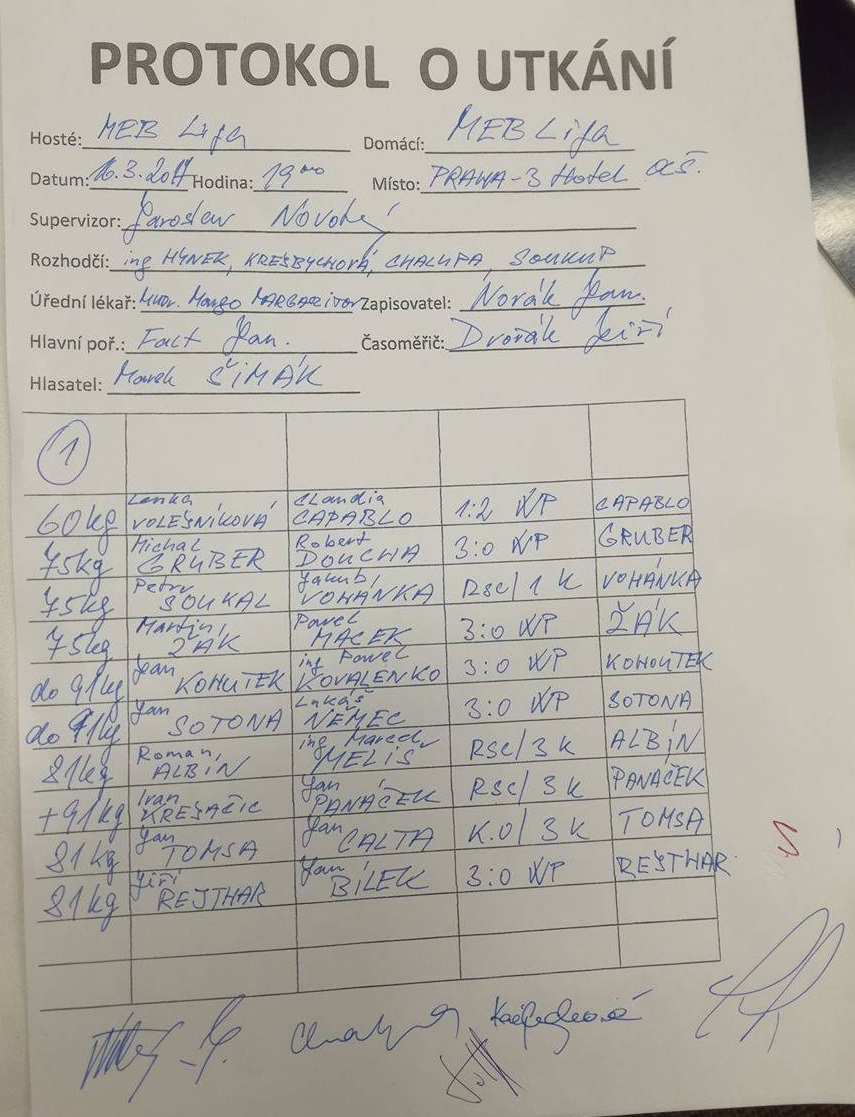 PROTOKOL O UTKÁNÍ
Hosté: MEB Liga Domácí: MEB Liga
Datum: 16.3.2017 Hodina: 19 00 Místo: PRAHA-3 Hotel OLŠ.
Supervizor: Jaroslav Novotný
Rozhodčí: ing HYNEK, KREJBYCHOVÁ, CHALUPA, SOUKUP
Úřední lékař: MUDr. MARGARITOV Zapisovatel: Novák Jan.
Hlavní poř.: Fait Jan. Časoměřič: Dvořák Jiří
Hlasatel: Marek ŠIMÁK
1
60kg Lenka VOLEŠNÍKOVÁ CLaudia CAPABLO 1:2 WP CAPABLO
75kg Michal GRUBER Robert DOUCHA 3:0 WP GRUBER
75kg Petr SOUKAL Jakub VOHÁNKA RSC/1 K VOHÁNKA
75kg Martin ŽÁK Pavel MACEK 3:0 WP ŽÁK
do 91kg Jean KOHUTEK ing Pavel KOVALENKO 3:0 WP KOHOUTEK
do 91kg Jan SOTONA Lukáš NĚMEC 3:0 WP SOTONA
81kg Roman ALBÍN ing Marech MELIŠ RSC/3 K ALBÍN
+91kg Ivan KRESAČIC Jan PANÁČEK RSC/3 K PANÁČEK
81kg Jan TOMSA Jan CALTA K.O/3 K TOMSA
81kg Jiří REJTHAR Jan BÍLEK 3:0 WP REJTHAR